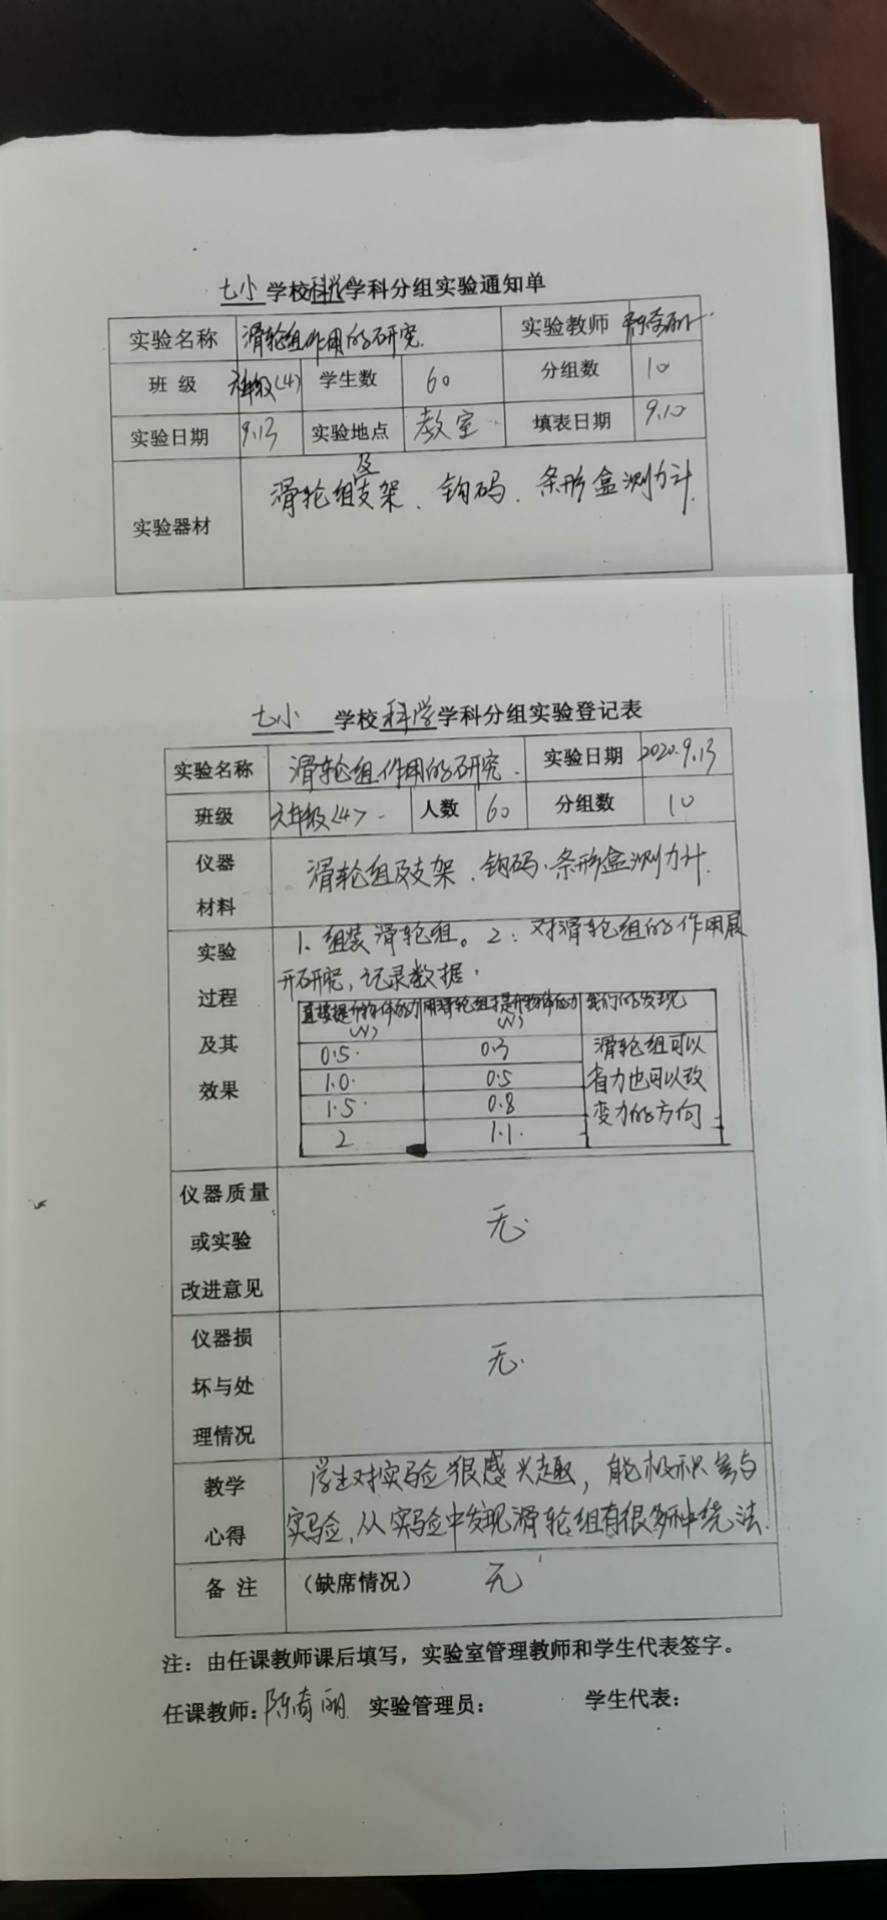 七小 学校科学学科分组实验通知单
实验名称 滑轮组作用的研究. 实验教师
班 级 六年级(4) 学生数 60 分组数 10
实验日期 9.13 实验地点 教室 填表日期 9.10
实验器材 滑轮组及支架、钩码、条形盒测力计.
七小 学校科学学科分组实验登记表
实验名称 滑轮组作用的研究. 实验日期 2020.9.13
班级 六年级<4> 人数 60 分组数 10
仪器材料 滑轮组及支架、钩码、条形盒测力计.
实验过程及其效果
1、组装滑轮组。2、对滑轮组的作用展
开研究,记录数据.
直接提升物体的力(N) 用滑轮组提升物体的力(N) 我们的发现
0.5 0.3 滑轮组可以
1.0 0.5 省力也可以改
1.5 0.8 变力的方向
2 1.1
仪器质量或实验改进意见 无.
仪器损坏与处理情况 无.
教学心得
学生对实验很感兴趣,能极积参与
实验,从实验中发现滑轮组有很多种绕法.
备 注 (缺席情况) 无
注:由任课教师课后填写,实验室管理教师和学生代表签字。
任课教师: 实验管理员: 学生代表: